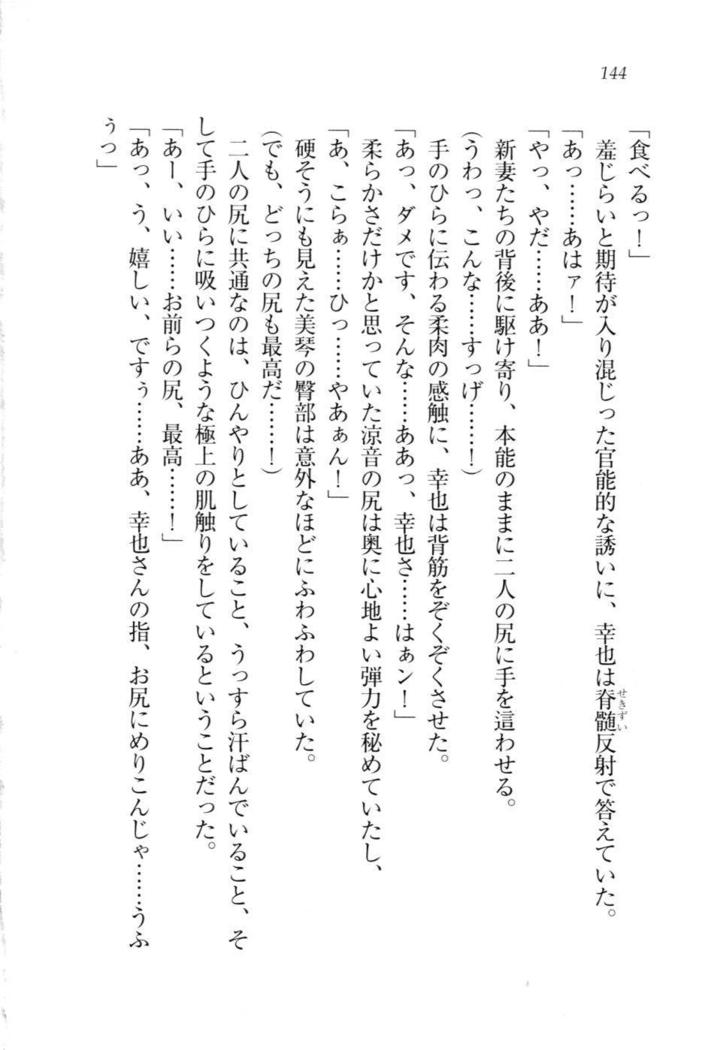 144
「食べるっ！」
羞じらいと期待が入り混じった官能的な誘いに、幸也は脊髄反射で答えていた。
せきずい
「あっ……あはァ！」
「やっ、やだ……ああ！」
新妻たちの背後に駆け寄り、本能のままに二人の尻に手を這わせる。
(うわっ、こんな……すっげ……！)
手のひらに伝わる柔肉の感触に、幸也は背筋をぞくぞくさせた。
「あっ、ダメです、そんな……ああっ、幸也さ……はぁン！」
柔らかさだけかと思っていた涼音の尻は奥に心地よい弾力を秘めていたし、
「あ、こらぁ……ひっ……やあぁん！」
硬そうにも見えた美琴の臀部は意外なほどにふわふわしていた。
(でも、どっちの尻も最高だ……！)
二人の尻に共通なのは、ひんやりとしていること、うっすら汗ばんでいること、そ
して手のひらに吸いつくような極上の肌触りをしているということだった。
「あー、いい……お前らの尻、最高……！」
「あっ、う、嬉しい、ですぅ……ああ、幸也さんの指、お尻にめりこんじゃ……うふ
ぅっ」